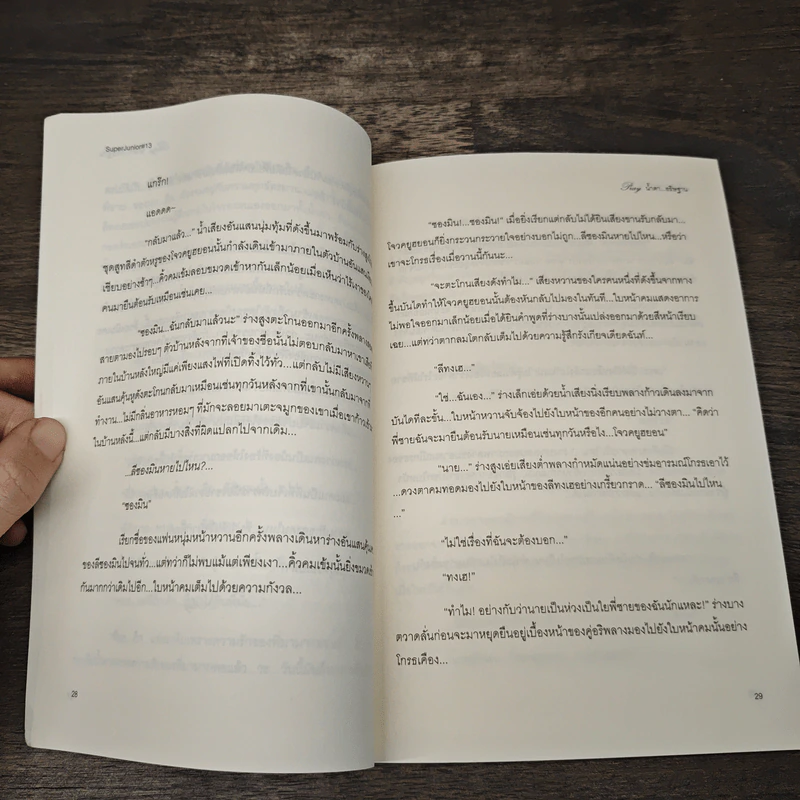 SuperJunior#13
แกร๊ก!
แอดดด~
"กลับมาแล้ว..." น้ำเสียงอันแสนนุ่มทุ้มที่ดังขึ้นมาพร้อมกับร่างสูงใน
ชุดสูทสีดำตัวหรูของโจวคยูฮยอนนั้นกำลังเดินเข้ามาภายในตัวบ้านอันแสน
เงียบอย่างช้าๆ...คิ้วคมเข้มลอบขมวดเข้าหากันเล็กน้อยเมื่อเห็นว่าไร้เงาของ
คนมายืนต้อนรับเหมือนเช่นเคย...
"ซองมิน...ฉันกลับมาแล้วนะ" ร่างสูงตะโกนออกมาอีกครั้งพลาง
สายตามองไปรอบๆ ตัวบ้านหากแต่เจ้าของชื่อนั้นไม่ตอบกลับมาหาเขา
ภายในบ้านหลังใหญ่มีแค่เพียงแสงไฟที่เปิดทิ้งไว้ทั่ว...แต่กลับไม่มีเสียงหวาน
อันแสนคุ้นหูดังตะโกนกลับมาเหมือนเช่นทุกวันหลังจากที่เขานั้นกลับมาจากที่
ทำงาน...ไม่มีกลิ่นอาหารหอมๆ ที่มักจะลอยมาเตะจมูกของเขาเมื่อเขาก้าว
ในบ้านหลังนี้...แต่กลับมีบางสิ่งที่ผิดแปลกไปจากเดิม...
...ลีซองมินหายไปไหน?...
"ซองมิน"
เรียกชื่อของแฟนหนุ่มหน้าหวานอีกครั้งพลางเดินหาร่างอันแสนคุ้นตา
ของลีซองมินไปจนทั่ว...แต่ทว่าก็ไม่พบแม้แต่เพียงเงา...คิ้วคมเข้มนั้นยิ่งขมวดเข้า
กันมากกว่าเดิมไปอีก...ใบหน้าคมเต็มไปด้วยความกังวล...
28
Pray น้ำตา...อธิษฐาน
"ซองมิน!...ซองมิน!" เมื่อยิ่งเรียกแต่กลับไม่ได้ยินเสียงขานรับกลับมา...
โจวคยูฮยอนก็ยิ่งกระวนกระวายใจอย่างบอกไม่ถูก...ลีซองมินหายไปไหน...หรือว่า
เขาจะโกรธเรื่องเมื่อวานนี้กันนะ...
"จะตะโกนเสียงดังทำไม..." เสียงหวานของใครคนหนึ่งที่ดังขึ้นจากทาง
ขึ้นบันไดทำให้โจวคยูฮยอนนั้นต้องหันกลับไปมองในทันที...ใบหน้าคมแสดงอาการ
ไม่พอใจออกมาเล็กน้อยเมื่อได้ยินคำพูดที่ร่างบางนั้นเปล่งออกมาด้วยสีหน้าเรียบ
เฉย...แต่ทว่าตากลมโตกลับเต็มไปด้วยความรู้สึกรังเกียจเดียดฉันท์...
"ลีทงเฮ..."
"ใช่...ฉันเอง..." ร่างเล็กเอ่ยด้วยน้ำเสียงนิ่งเรียบพลางก้าวเดินลงมาจาก
บันไดทีละขั้น...ใบหน้าหวานจับจ้องไปยังใบหน้าของอีกคนอย่างไม่วางตา... "คิดว่า
พี่ชายฉันจะมายืนต้อนรับนายเหมือนเช่นทุกวันหรือไง...โจวคยูฮยอน"
"นาย..." ร่างสูงเอ่ยเสียงต่ำพลางกำหมัดแน่นอย่างข่มอารมณ์โกรธเอาไว้
...ดวงตาคมทอดมองไปยังใบหน้าของลีทงเฮอย่างเกรี้ยวกราด... "ลีซองมินไปไหน
..."
"ไม่ใช่เรื่องที่ฉันจะต้องบอก..."
"ทงเฮ!"
"ทำไม! อย่างกับว่านายเป็นห่วงเป็นใยพี่ชายของฉันนักแหละ!" ร่างบาง
ตวาดลั่นก่อนจะมาหยุดยืนอยู่เบื้องหน้าของคู่อริพลางมองไปยังใบหน้าคมนั้นอย่าง
โกรธเคือง...
29